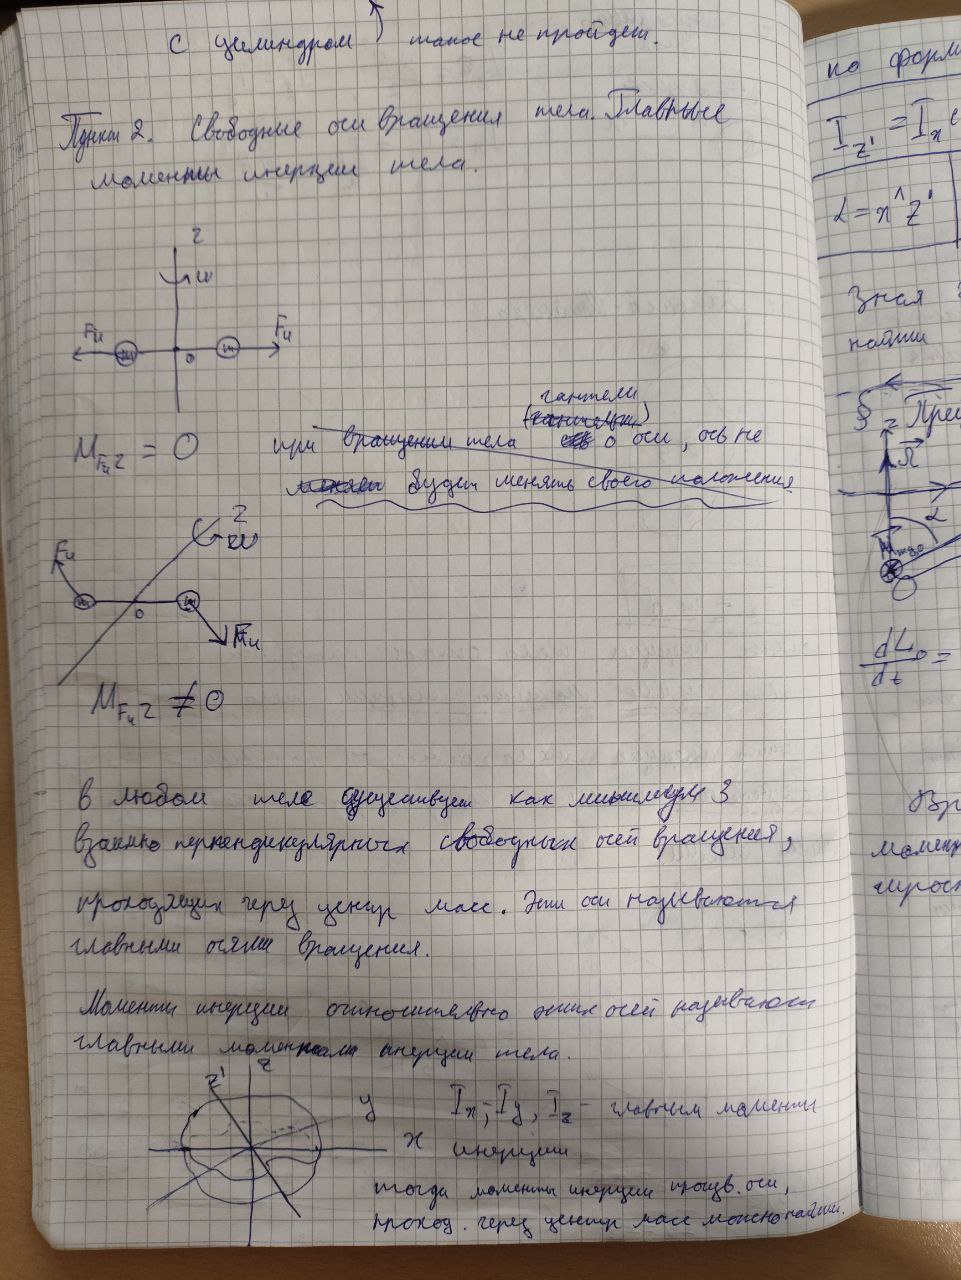 с цилиндром такое не пройдет.
Пункт 2. Свободные оси вращения тела. Главные
моменты инерции тела.
z
ω
Fu
Fu
m
m
0
гантели
M Fu z = 0
при вращении тела о оси, ось не
будет менять своего положения
z
ω
Fu
m
m
0
Fu
M Fu z ≠ 0
В любом теле существует как минимум 3
взаимно перпендикулярных свободных осей вращения,
проходящих через центр масс. Эти оси называются
главными осями вращения.
Моменты инерции относительно этих осей называются
главными моментами инерции тела.
z'
z
y
x
Ix, Iy, Iz – главным моменты
инерции.
тогда моменты инерции произв. оси,
проход. через центр масс можно найти.
по форм
Iz' = Ix c
α = x^z'
Зная
найти
§
Прец
α
0
dL0/dt =
Вр
момент